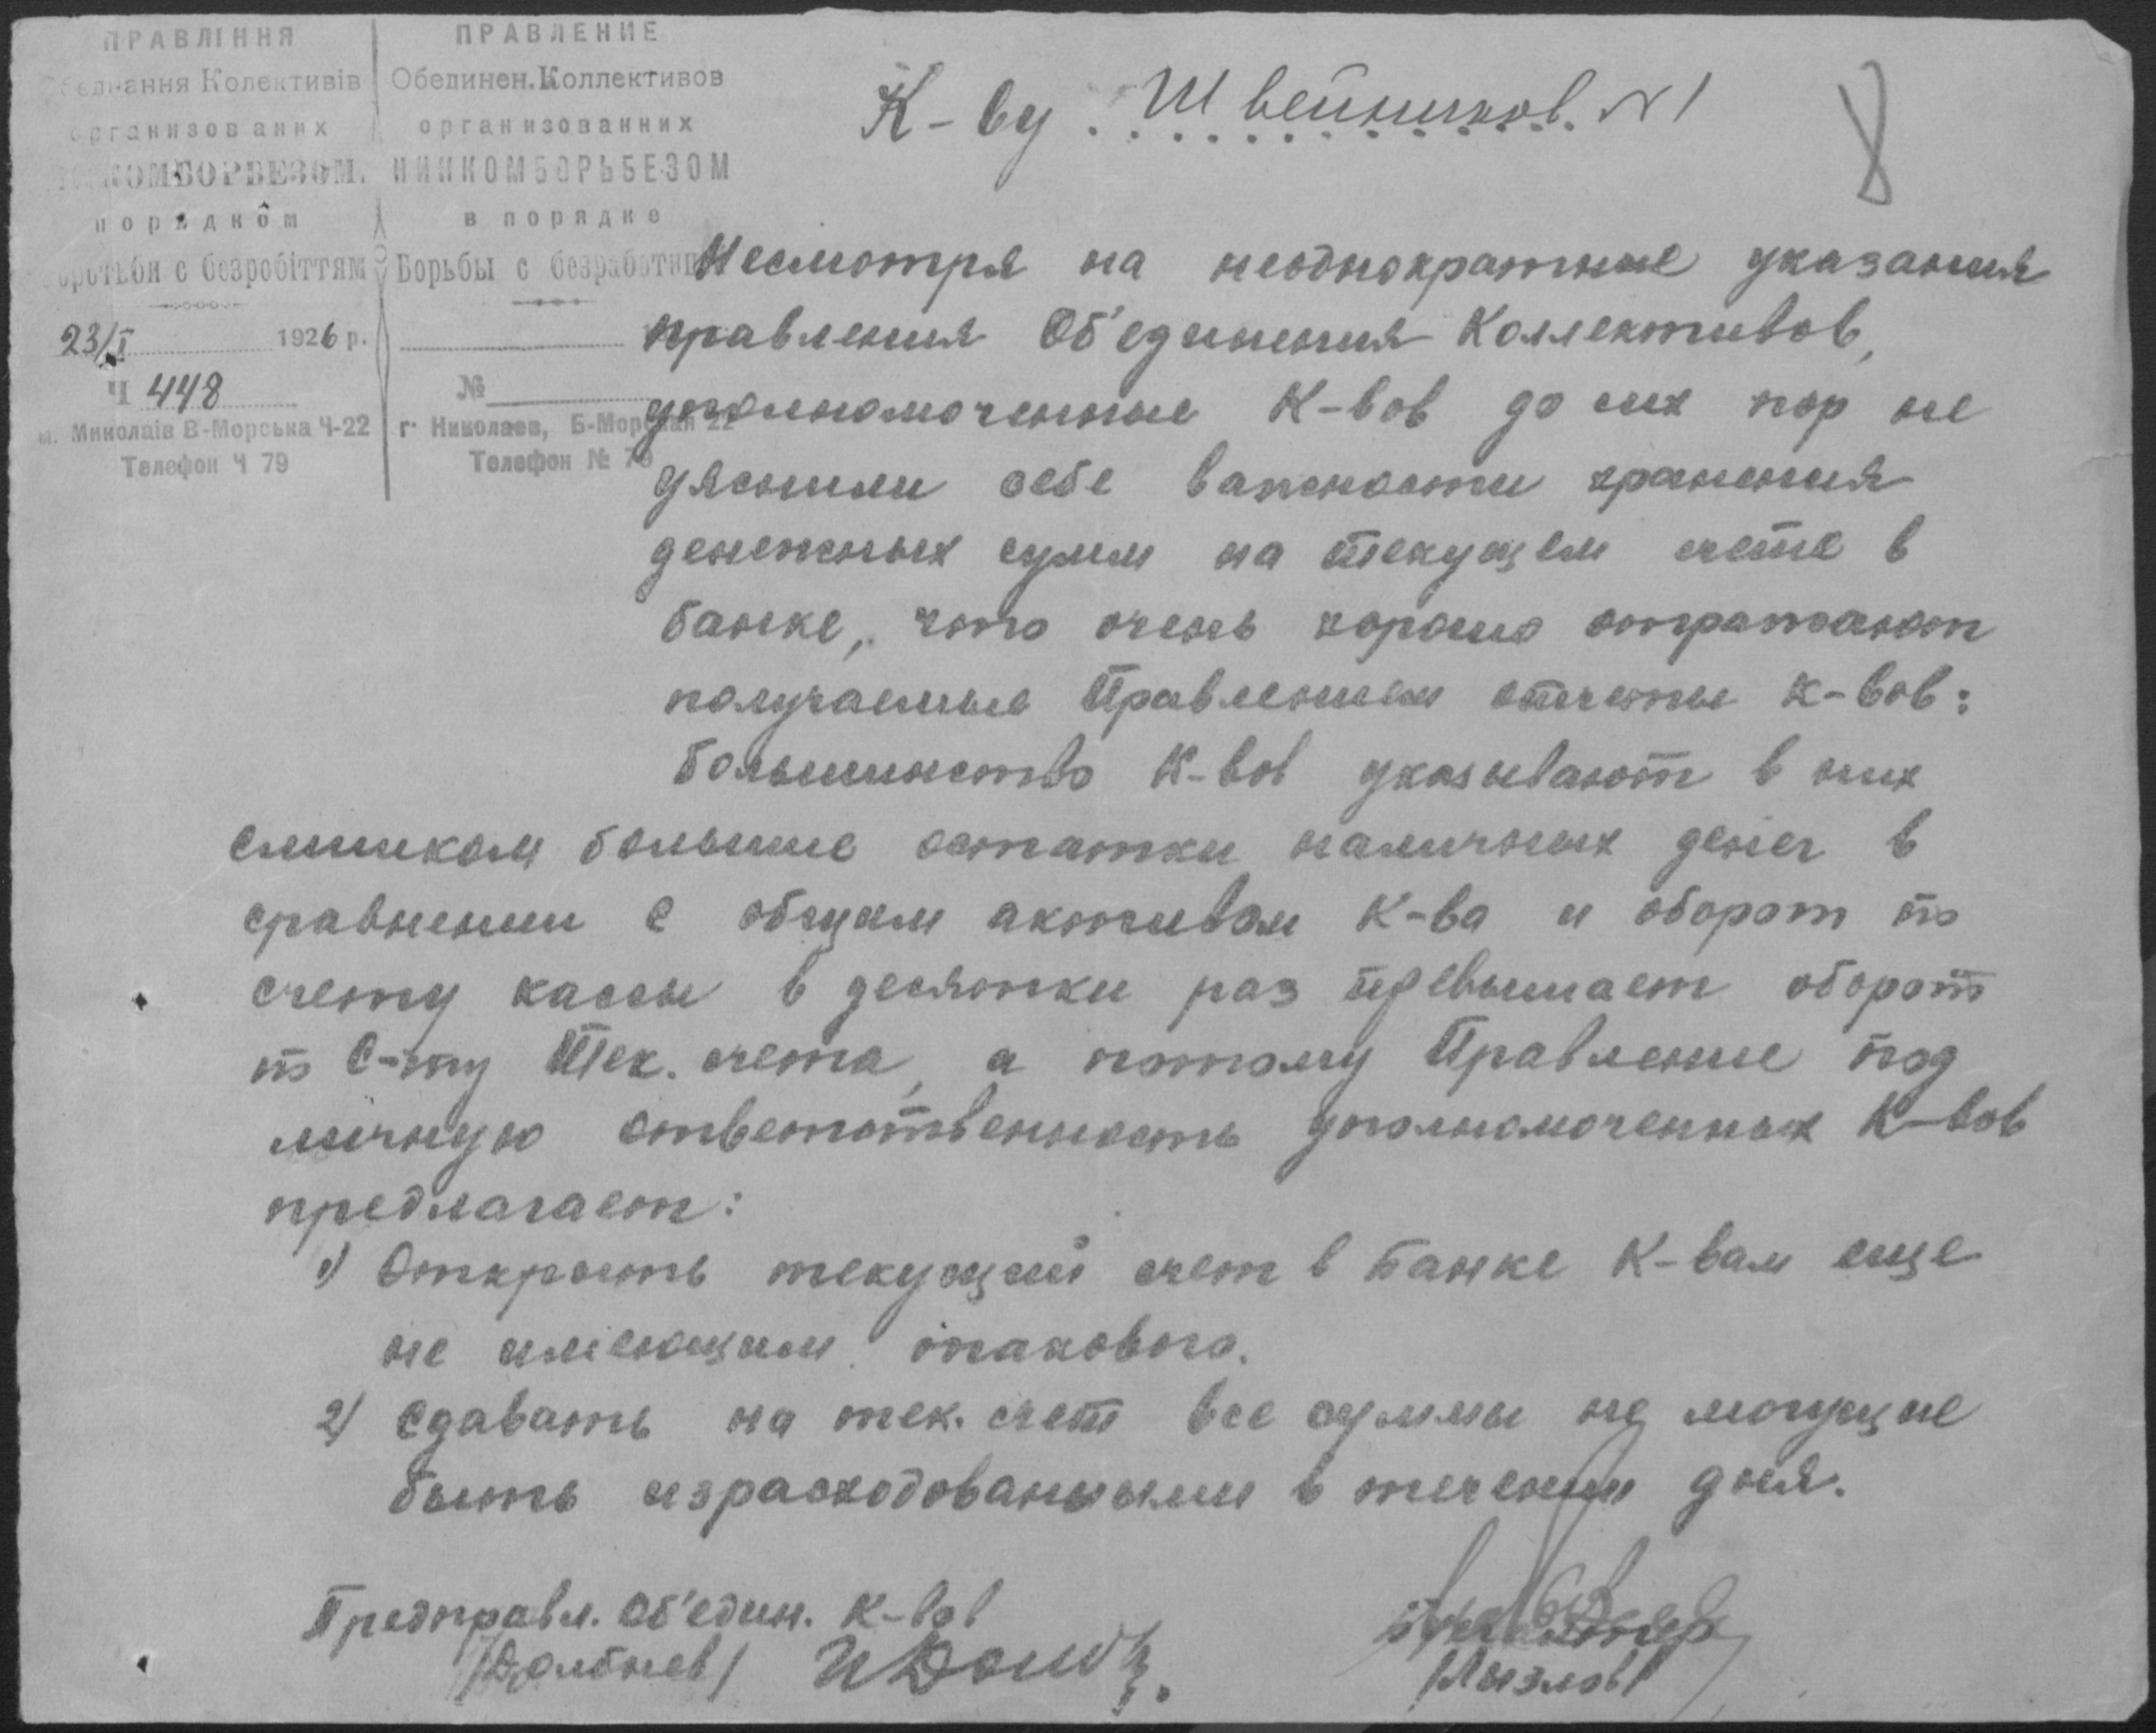 ПРАВЛІННЯ
Обеднання Колективів
организованих
КОМБОРБЕЗОМ.
порядком
боротьби с безробіттям
23/I 1926 р.
Ч 448
м. Миколаів В-Морська Ч-22
Телефон Ч 79
ПРАВЛЕНИЕ
Обединен. Коллективов
организованних
НИККОМБОРЬБЕЗОМ
в порядке
Борьбы с безработиц
№
г. Николаев, Б-Морская 22
Телефон № 79
К-ву. Швейников. N 1
8
Несмотря на неоднократные указания
правления Об'единения Коллективов,
уполномоченные К-вов до сих пор не
уяснили себе важности хранения
денежных сумм на текущем счете в
банке, что очень хорошо отражают
получаемые Правлением отчеты К-вов:
большинство К-вов указывают в них
слишком большие остатки наличных денег в
сравнении с общим активом К-ва и оборот по
счету кассы в десятки раз превышает оборот
по С-ту Тек. счета, а потому Правление под
личную ответственность уполномоченных К-вов
предлагает:
1) Открыть текущий счет в Банке К-вам еще
не имеющим такового.
2) Сдавать на тек. счет все суммы не могущие
быть израсходованными в течении дня.
Предправл. Об'един. К-вов
/Долбнев/
/Лызлов/